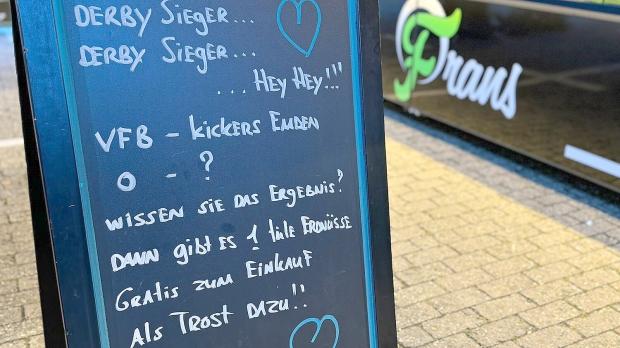 DERBY SIEGER...
DERBY SIEGER...
...HEY HEY!!!
VFB - KICKERS EMDEN
0 - ?
WISSEN SIE DAS ERGEBNIS?
DANN GIBT ES 1 TÜTE ERDNÜSSE
GRATIS ZUM EINKAUF
ALS TROST DAZU!!
Frans